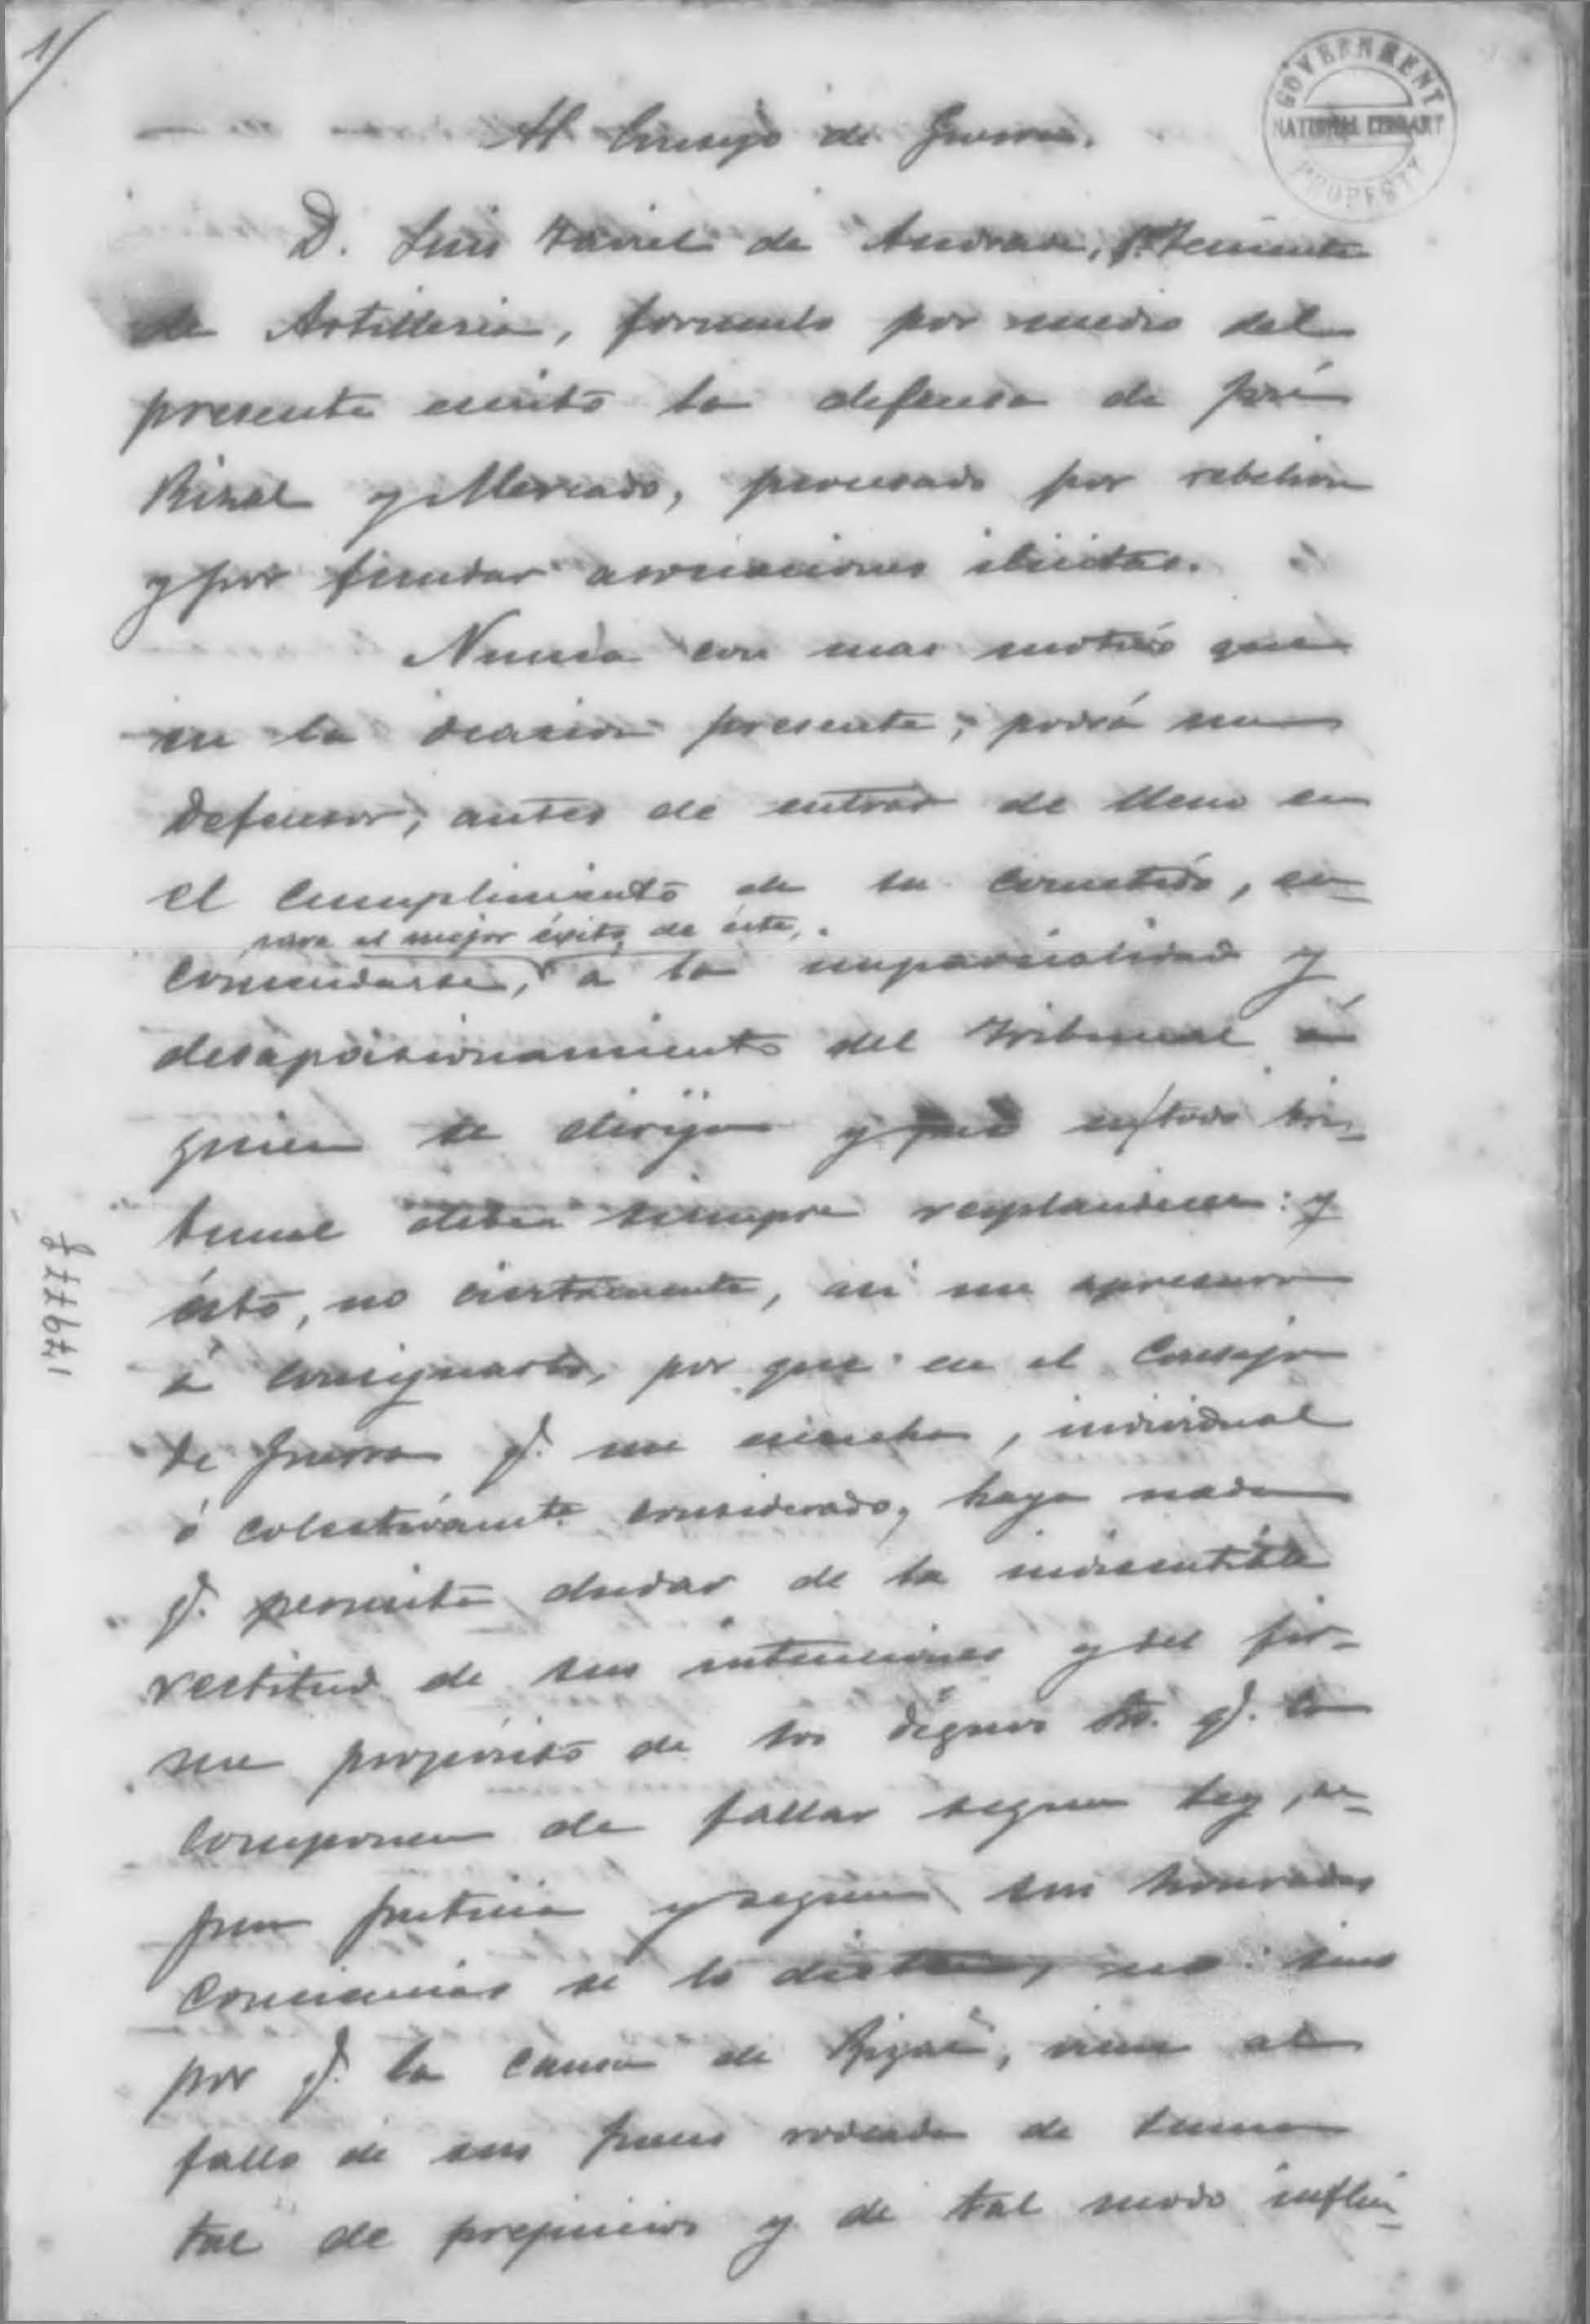 1/
GOVERNMENT
NATIONAL LIBRARY
PROPERTY
Al Consejo de Guerra.
D. Luis Taviel de Andrade, 1er. Teniente
de Artilleria, formulo por medio del
presente escrito la defensa de José
Rizal y Mercado, procesado por rebelion
y por fundar asociaciones ilicitas.
Nunca con mas motivo que
en la ocasion presente, podrá un
defensor, antes de entrar de lleno en
el cumplimiento de su cometido, en-
para el mejor éxito de éste,
comendarse, a la imparcialidad y
desapasionamiento del Tribunal á
quien se dirija y que en todo tri-
bunal deben siempre resplandecer: y
ésto, no ciertamente, asi me apresuro
á consignarlo, por que en el Consejo
de Guerra q. me escucha, individual
ó colectivamte. considerado, haya nada
q. permita dudar de la indiscutible
rectitud de sus intenciones y del fir-
me propósito de los dignos Sres. q. lo
componen de fallar segun ley, se-
gun justicia y segun sus honradas
conciencias se lo dicten, no: sino
por q. la causa de Rizal, viene al
fallo de sus jueces rodeada de suma
tal de prejuicios y de tal modo influi-